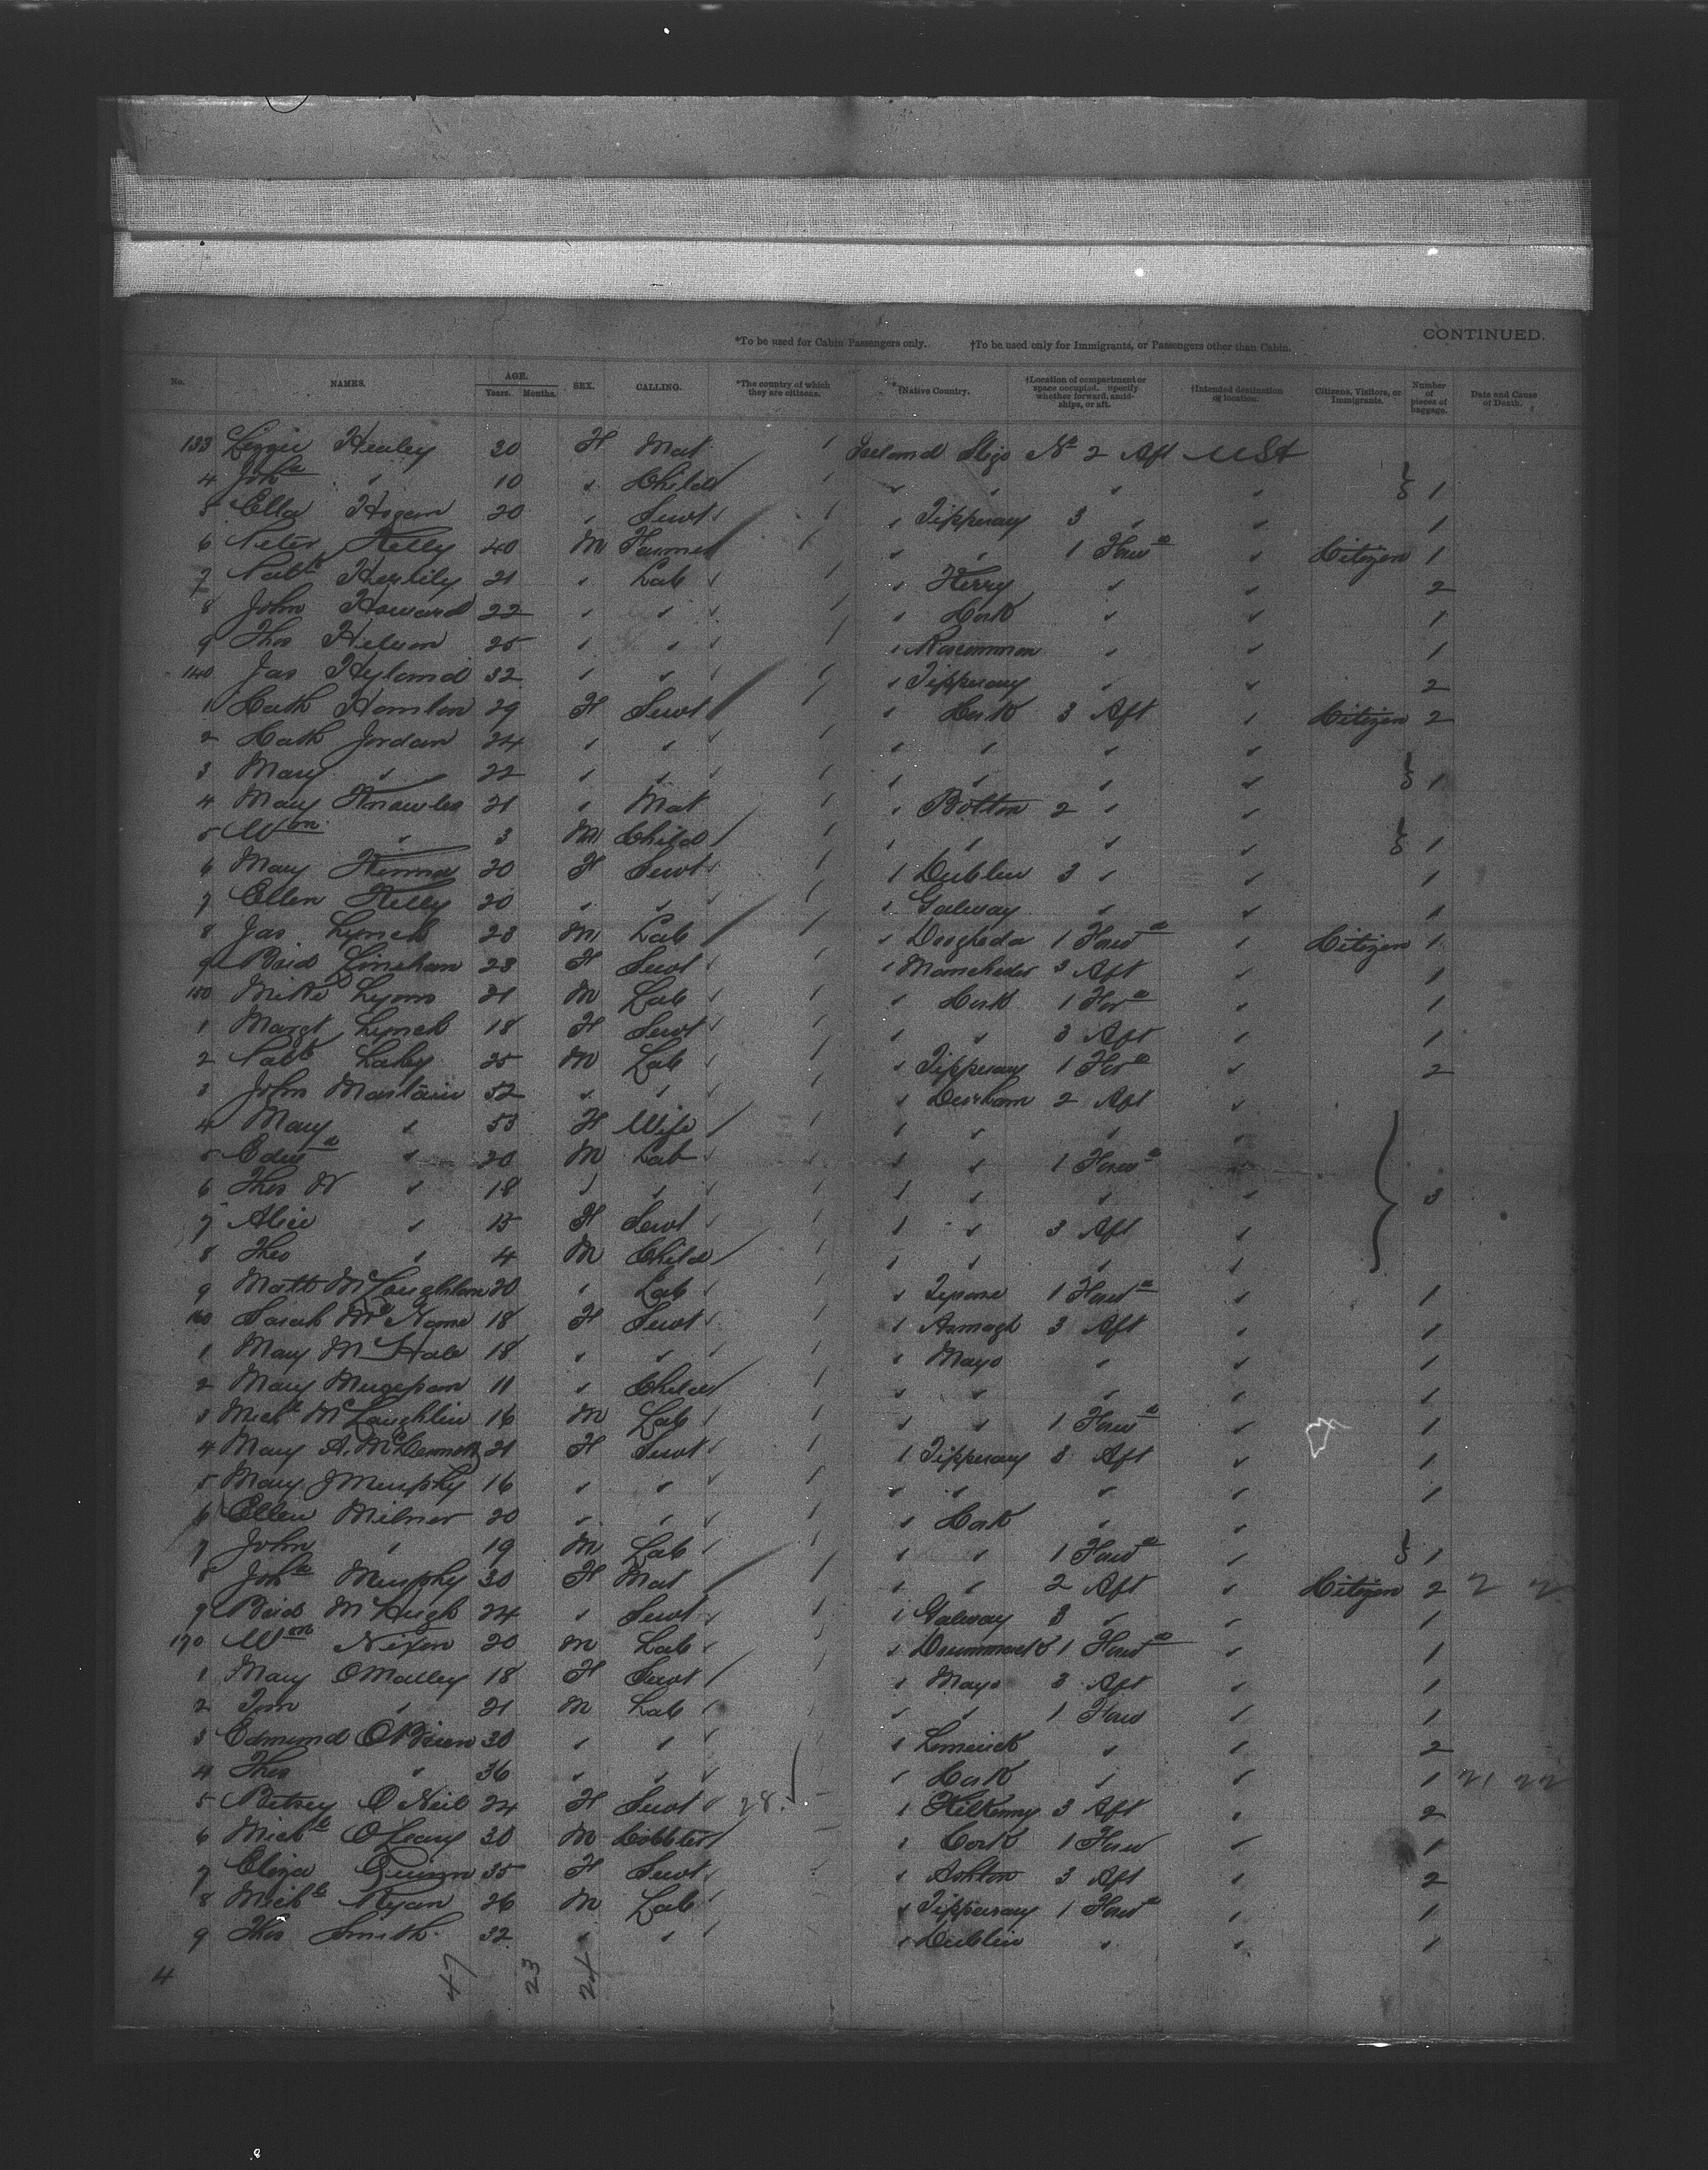 CONTINUED.
*To be used for Cabin Passengers only. †To be used only for Immigrants, or Passengers other than Cabin.
No. NAMES. AGE. Years. Months. SEX. CALLING. *The country of which they are citizens. *†Native Country. †Location of compartment or space occupied. Specify whether forward, amidships, or aft. †Intended destination or location. Citizens, Visitors, or Immigrants. Number of pieces of baggage. Date and Cause of Death.
133 Lizzie Healey 30 F Mat Ireland Sligo No 2 Aft USA
4 " 10 " Child " " " " 1
5 Ella Hogan 20 " Servt " Tipperary 3 " " 1
6 Peter Kelly 40 M Farmer " " 1 Forwd " Citizen 1
7 Patk Herlily 21 " Lab " Kerry " " 2
8 John Howard 22 " " " Cork " " 1
9 Thos 25 " " " Roscommon " " 1
140 Jas Hyland 32 " " " Tipperary " " 2
1 Cath Hanlon 29 F Servt " Cork 3 Aft " Citizen 2
2 Cath Jordan 24 " " " " " "
3 Mary " 22 " " " " " " 1
4 Mary Knowles 21 " Mat " Bolton 2 " "
5 Wm " 3 M Child " " " " 1
6 Mary 20 F Servt " Dublin 3 " " 1
7 Ellen Kelly 20 " " " Galway " " 1
8 Jas Lynch 23 M Lab " Drogheda 1 Forwd " Citizen 1
9 Brid Linehan 23 F Servt " Manchester 3 Aft " 1
150 Mike Lyons 21 M Lab " Cork 1 Ford " 1
1 Margt Lynch 18 F Servt " " 3 Aft " 1
2 Patk Lahy 25 M Lab " Tipperary 1 Ford " 2
3 John 52 " " " Durham 2 Aft "
4 Mary " 53 F Wife " " " "
5 Edwd " 20 M Lab " " 1 Forwd "
6 Thos W " 18 " " " " " " 3
7 Alice " 15 F Servt " " 3 Aft "
8 Thos " 4 M Child " " " "
9 Matt McLaughlan 20 " Lab " Tyrone 1 Forwd " 1
160 Sarah McName 18 F Servt " Armagh 3 Aft " 1
1 Mary McHale 18 " " " Mayo " " 1
2 Mary 11 " Child " " " " 1
3 Michl McLaughlin 16 M Lab " " 1 Forwd " 1
4 Mary A. 21 F Servt " Tipperary 3 Aft " 1
5 Mary J Murphy 16 " " " " " " 1
6 Ellen Milner 20 " " " Cork " "
7 John " 19 M Lab " " 1 Forwd " 1
8 Murphy 30 F Mat " " 2 Aft " Citizen 2 2 2
9 Brid McHugh 24 " Servt " Galway 3 " " 1
170 Wm Nixon 20 M Lab " 1 Forwd " 1
1 Mary O'Malley 18 F Servt " Mayo 3 Aft " 1
2 Tom " 21 M Lab " " 1 Forw " 1
3 Edmund O'Brien 30 " " " Limerick " " 2
4 Thos " 36 " " " Cork " " 1 21 22
5 Betsey O'Neil 24 F Servt 28. " Kilkenny 3 Aft " 2
6 Michl O'Leary 30 M Cobbler " Cork 1 Forw " 1
7 Eliza Quinn 35 F Servt " Ashton 3 Aft " 2
8 Michl Ryan 26 M Lab " Tipperary 1 Forwd " 1
9 Thos Smith. 32 " " " Dublin " " 1
4 47 23 24